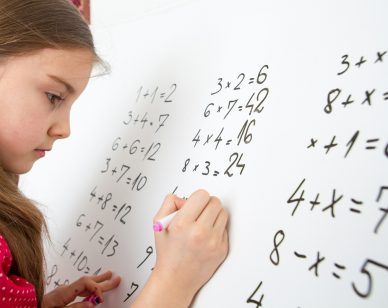 1+1=2
3+4=7
6+6=12
3+7=10
4+8=12
6+7=13
10+4
5+
3×2=6
6×7=42
4×4=16
8×3=24
9
3+x
8+x=
x+1=8
4+x=7
8-x=5
2+